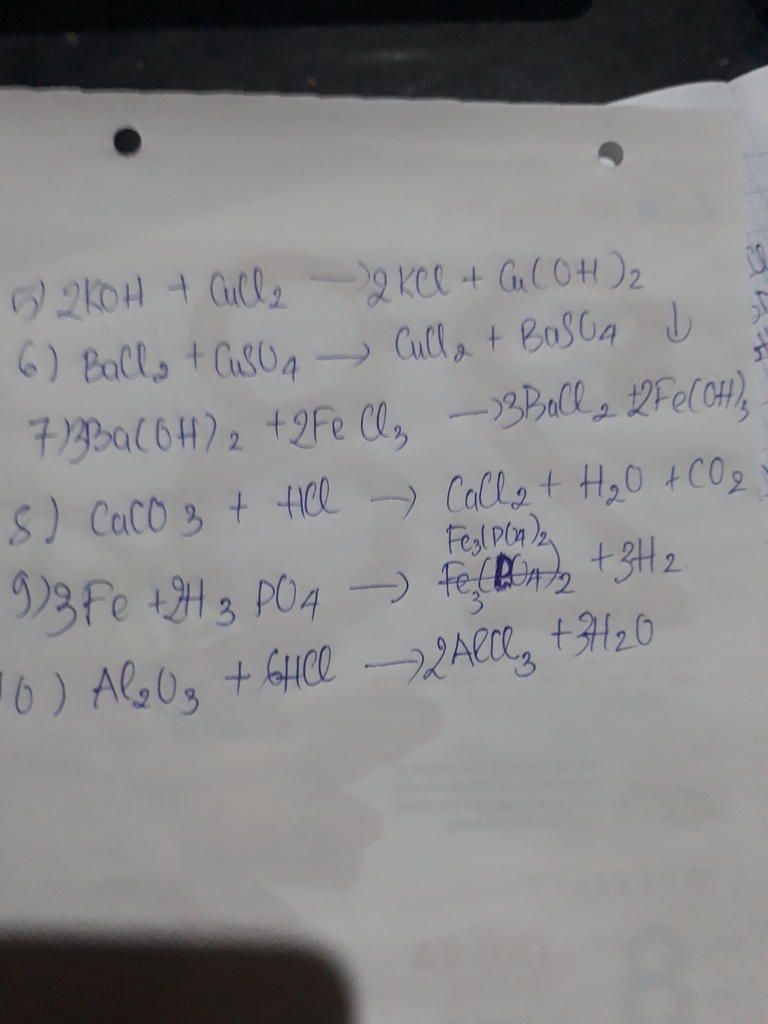 5) 2KOH + CuCl2 → 2KCl + Cu(OH)2
6) BaCl2 + CuSO4 → CuCl2 + BaSO4 ↓
7) 3Ba(OH)2 + 2FeCl3 → 3BaCl2 + 2Fe(OH)3
8) CaCO3 + HCl → CaCl2 + H2O + CO2
Fe3(PO4)2
9) 3Fe + 2H3PO4 → Fe3(PO4)2 + 3H2
10) Al2O3 + 6HCl → 2AlCl3 + 3H2O